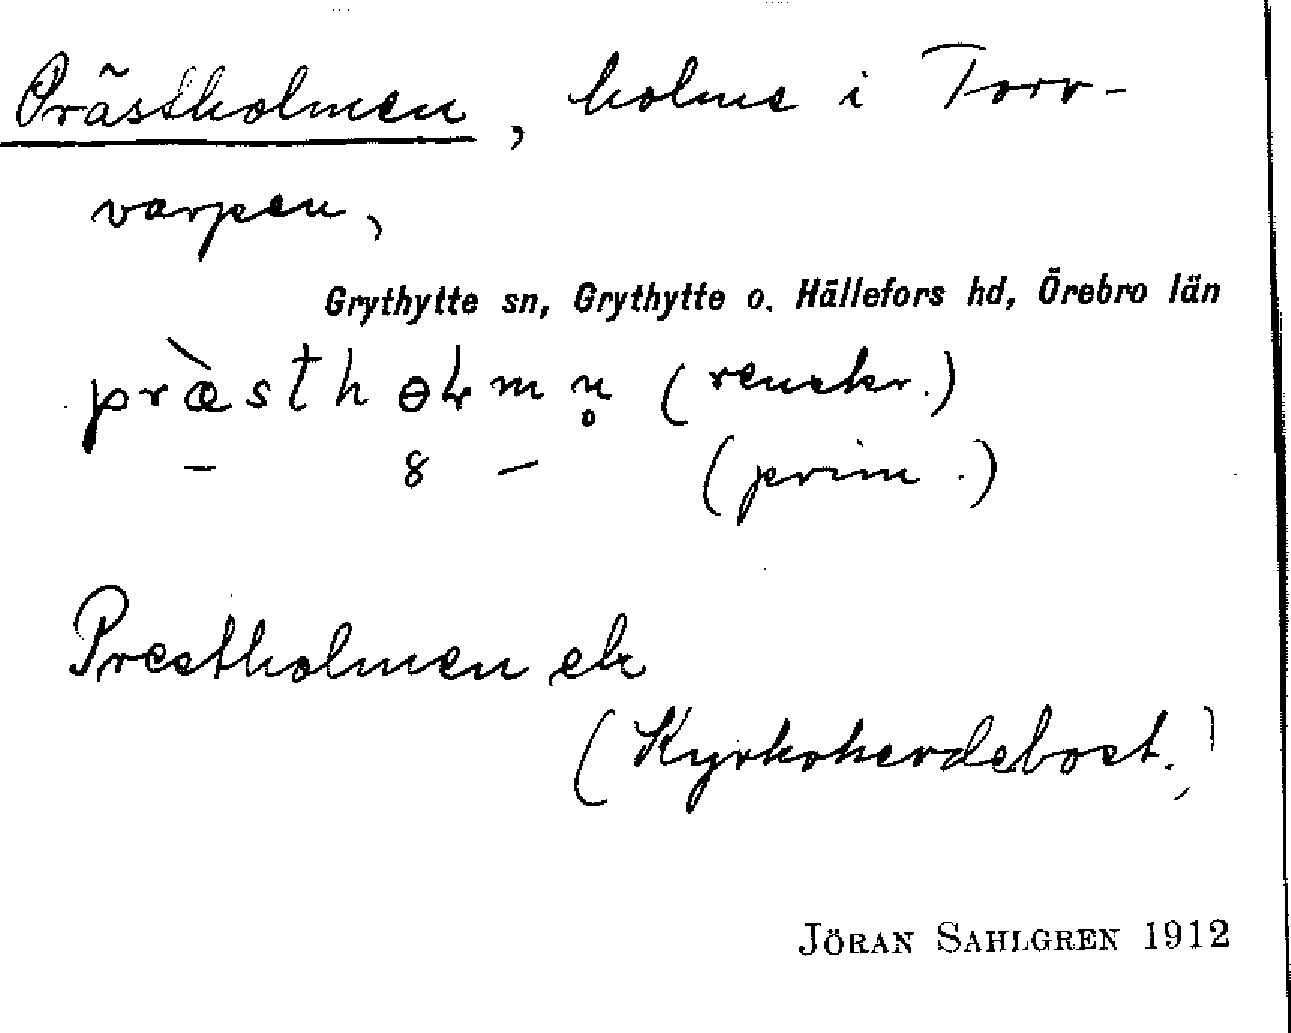 Prästholmen, holme i Torr-
varpen,
Grythytte sn, Grythytte o. Hällefors hd, Örebro län
præ̀sthɵɫmn̥ (renskr.)
– 8 – (prim.)
Prestholmen ek
(Kyrkoherdebost.)
JÖRAN SAHLGREN 1912